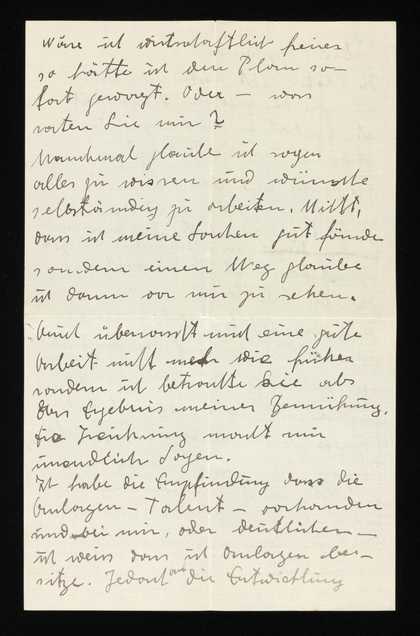 Wäre ich wirtschaftlich freier
so hätte ich den Plan so-
fort gewagt. Oder – was
raten Sie mir?
Manchmal glaube ich sogar
alles zu wissen und wünschte
selbständig zu arbeiten. Nicht,
dass ich meine Sachen gut fände
sondern einen Weg glaube
ich dann vor mir zu sehen.
Auch überrascht mich eine gute
Arbeit nicht mehr wie früher
sondern ich betrachte sie als
das Ergebnis meiner Bemühung.
Die Zeichnung macht mir
unendlich Sorgen.
Ich habe die Empfindung dass die
Anlagen – Talent – vorhanden
sind bei mir, oder deutlicher –
ich weiss dass ich Anlagen be-
sitze. Jedoch die Entwicklung